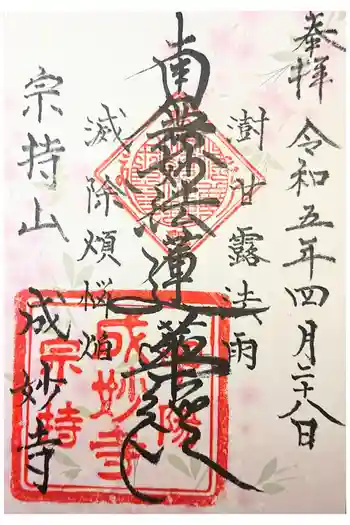 奉拝 令和五年四月二十八日
澍甘露法雨
南無妙法蓮華経
滅除煩悩焔
宗持山
成妙寺
成妙寺
宗持